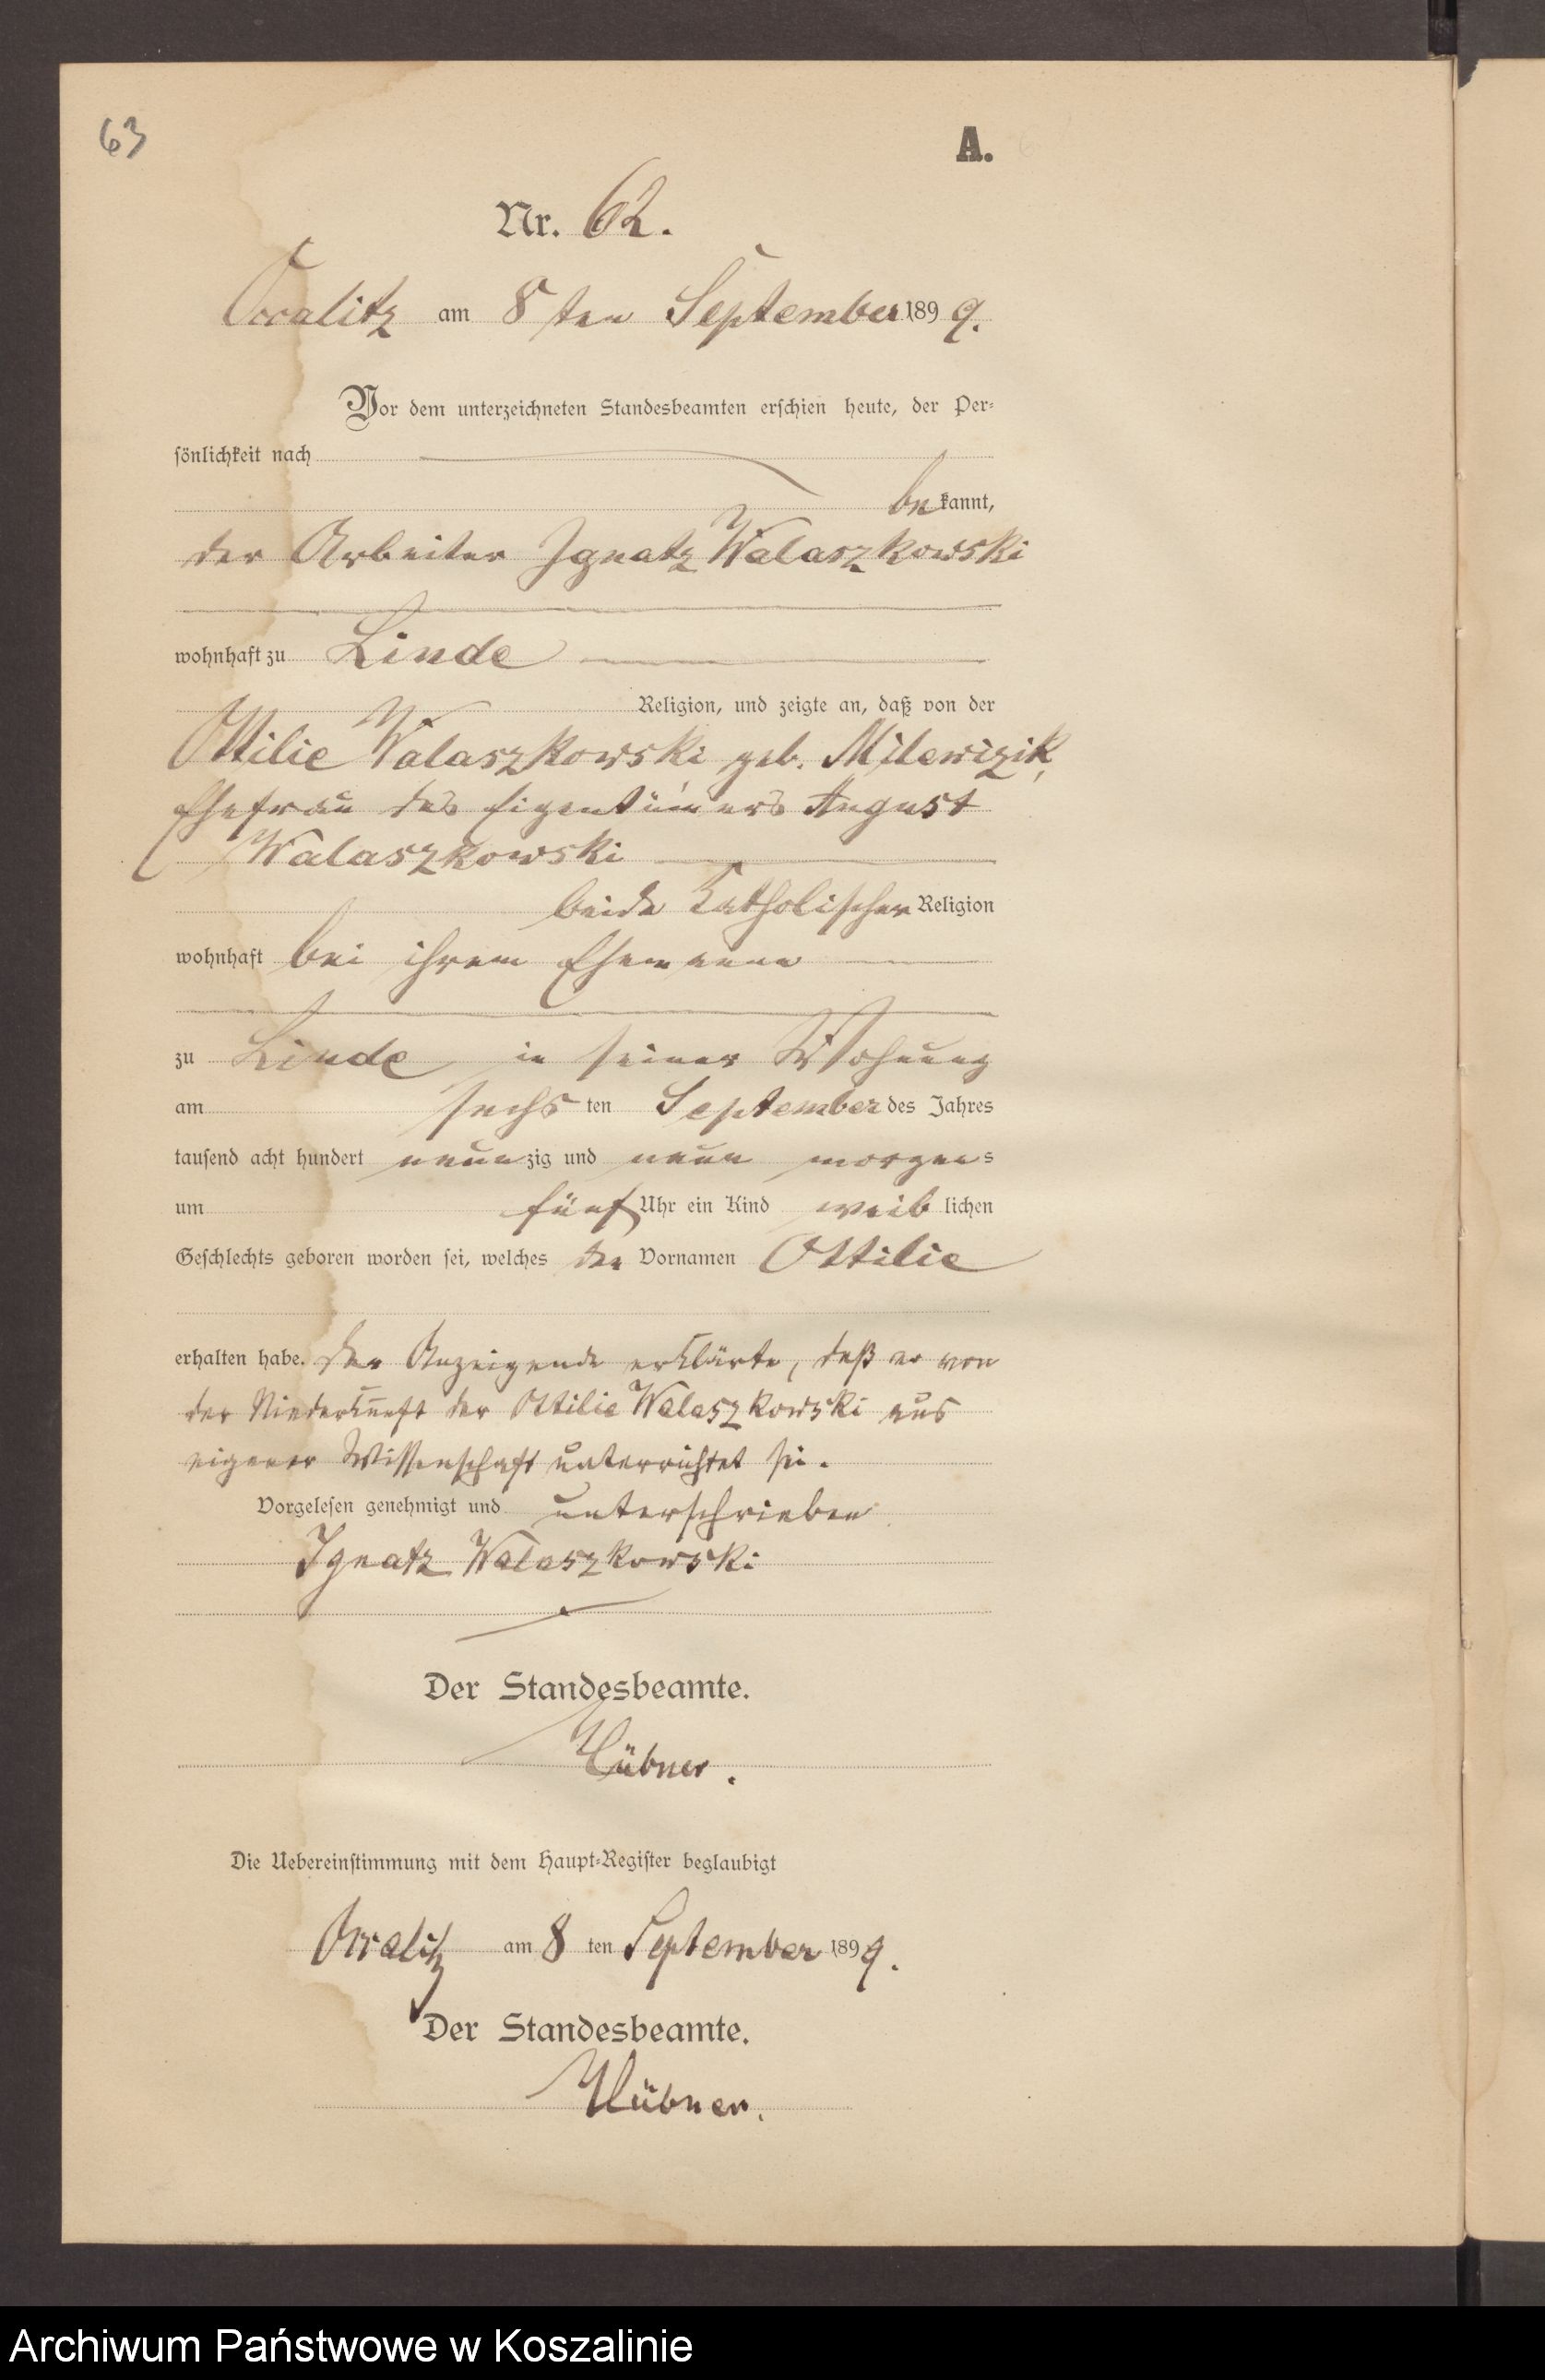 63
A.
Nr. 62.
Occalitz am 8 ten September 1899.
Vor dem unterzeichneten Standesbeamten erschien heute, der Per-
sönlichkeit nach
bekannt,
der Arbeiter Ignatz Walaszkowski
wohnhaft zu Linde
Religion, und zeigte an, daß von der
Ottilie Walaszkowski geb. Milewizik,
Ehefrau des Eigentümers August
Walaszkowski
beide katholischer Religion
wohnhaft bei ihrem Ehemanne
zu Linde in seiner Wohnung
am sechs ten September des Jahres
tausend acht hundert neunzig und neun morgens
um fünf Uhr ein Kind weiblichen
Geschlechts geboren worden sei, welches den Vornamen Ottilie
erhalten habe. Der Anzeigende erklärte, daß er von
der Niederkunft der Ottilie Walaszkowski aus
eigener Wissenschaft unterrichtet sei.
Vorgelesen genehmigt und unterschrieben
Ignatz Walaszkowski
Der Standesbeamte.
Hübner.
Die Uebereinstimmung mit dem Haupt-Register beglaubigt
Occalitz am 8 ten September 1899.
Der Standesbeamte.
Hübner.
Archiwum Państwowe w Koszalinie